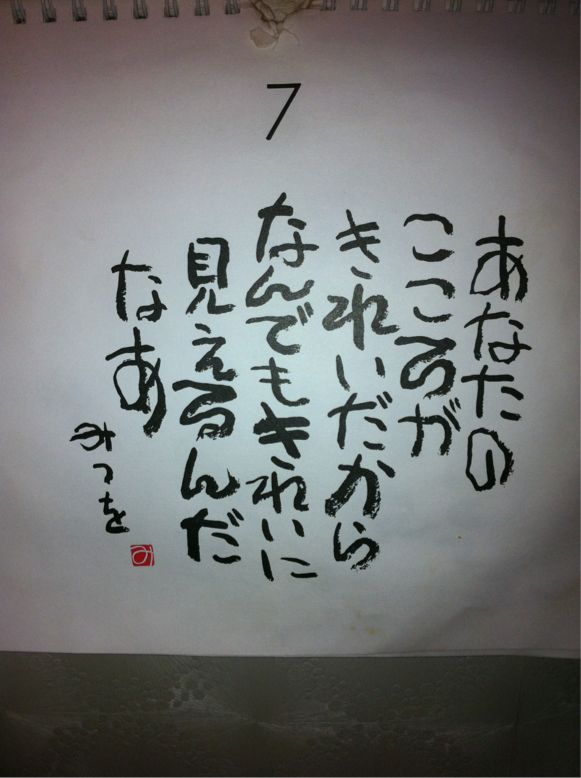 7
あなたの
こころが
きれいだから
なんでもきれいに
見えるんだ
なあ
みつを
み